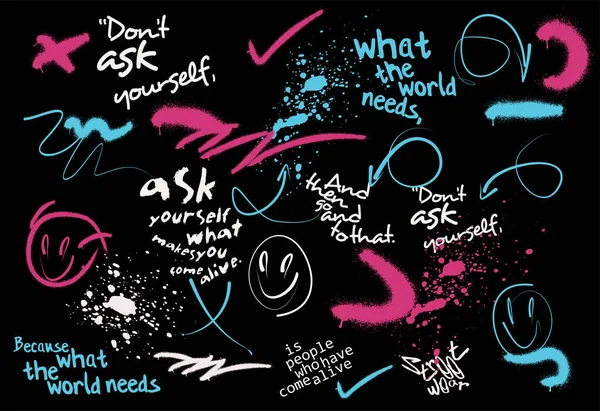 "Don't
ask
yourself,
what
the
world
needs,
ask
yourself
what
makes you
come
alive.
And
then
go
and
to that.
"Don't
ask
yourself,
Because
what
the
world needs
is
people
who have
come alive
Street
wear